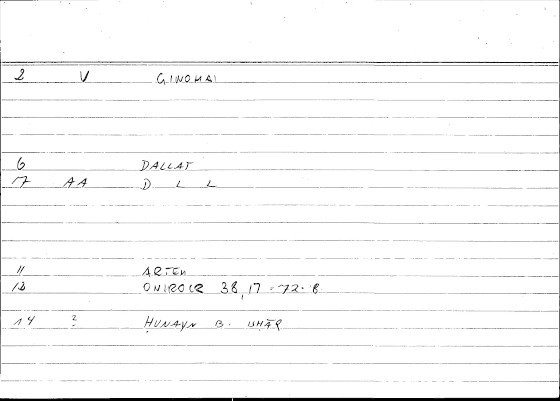 2 V GINOMAI
6 DALLAT
17 AA D L L
11 ARTEM
12 ONIROCR 38,17 = 72.8
14 ? ḤUNAYN B. ISḤĀQ